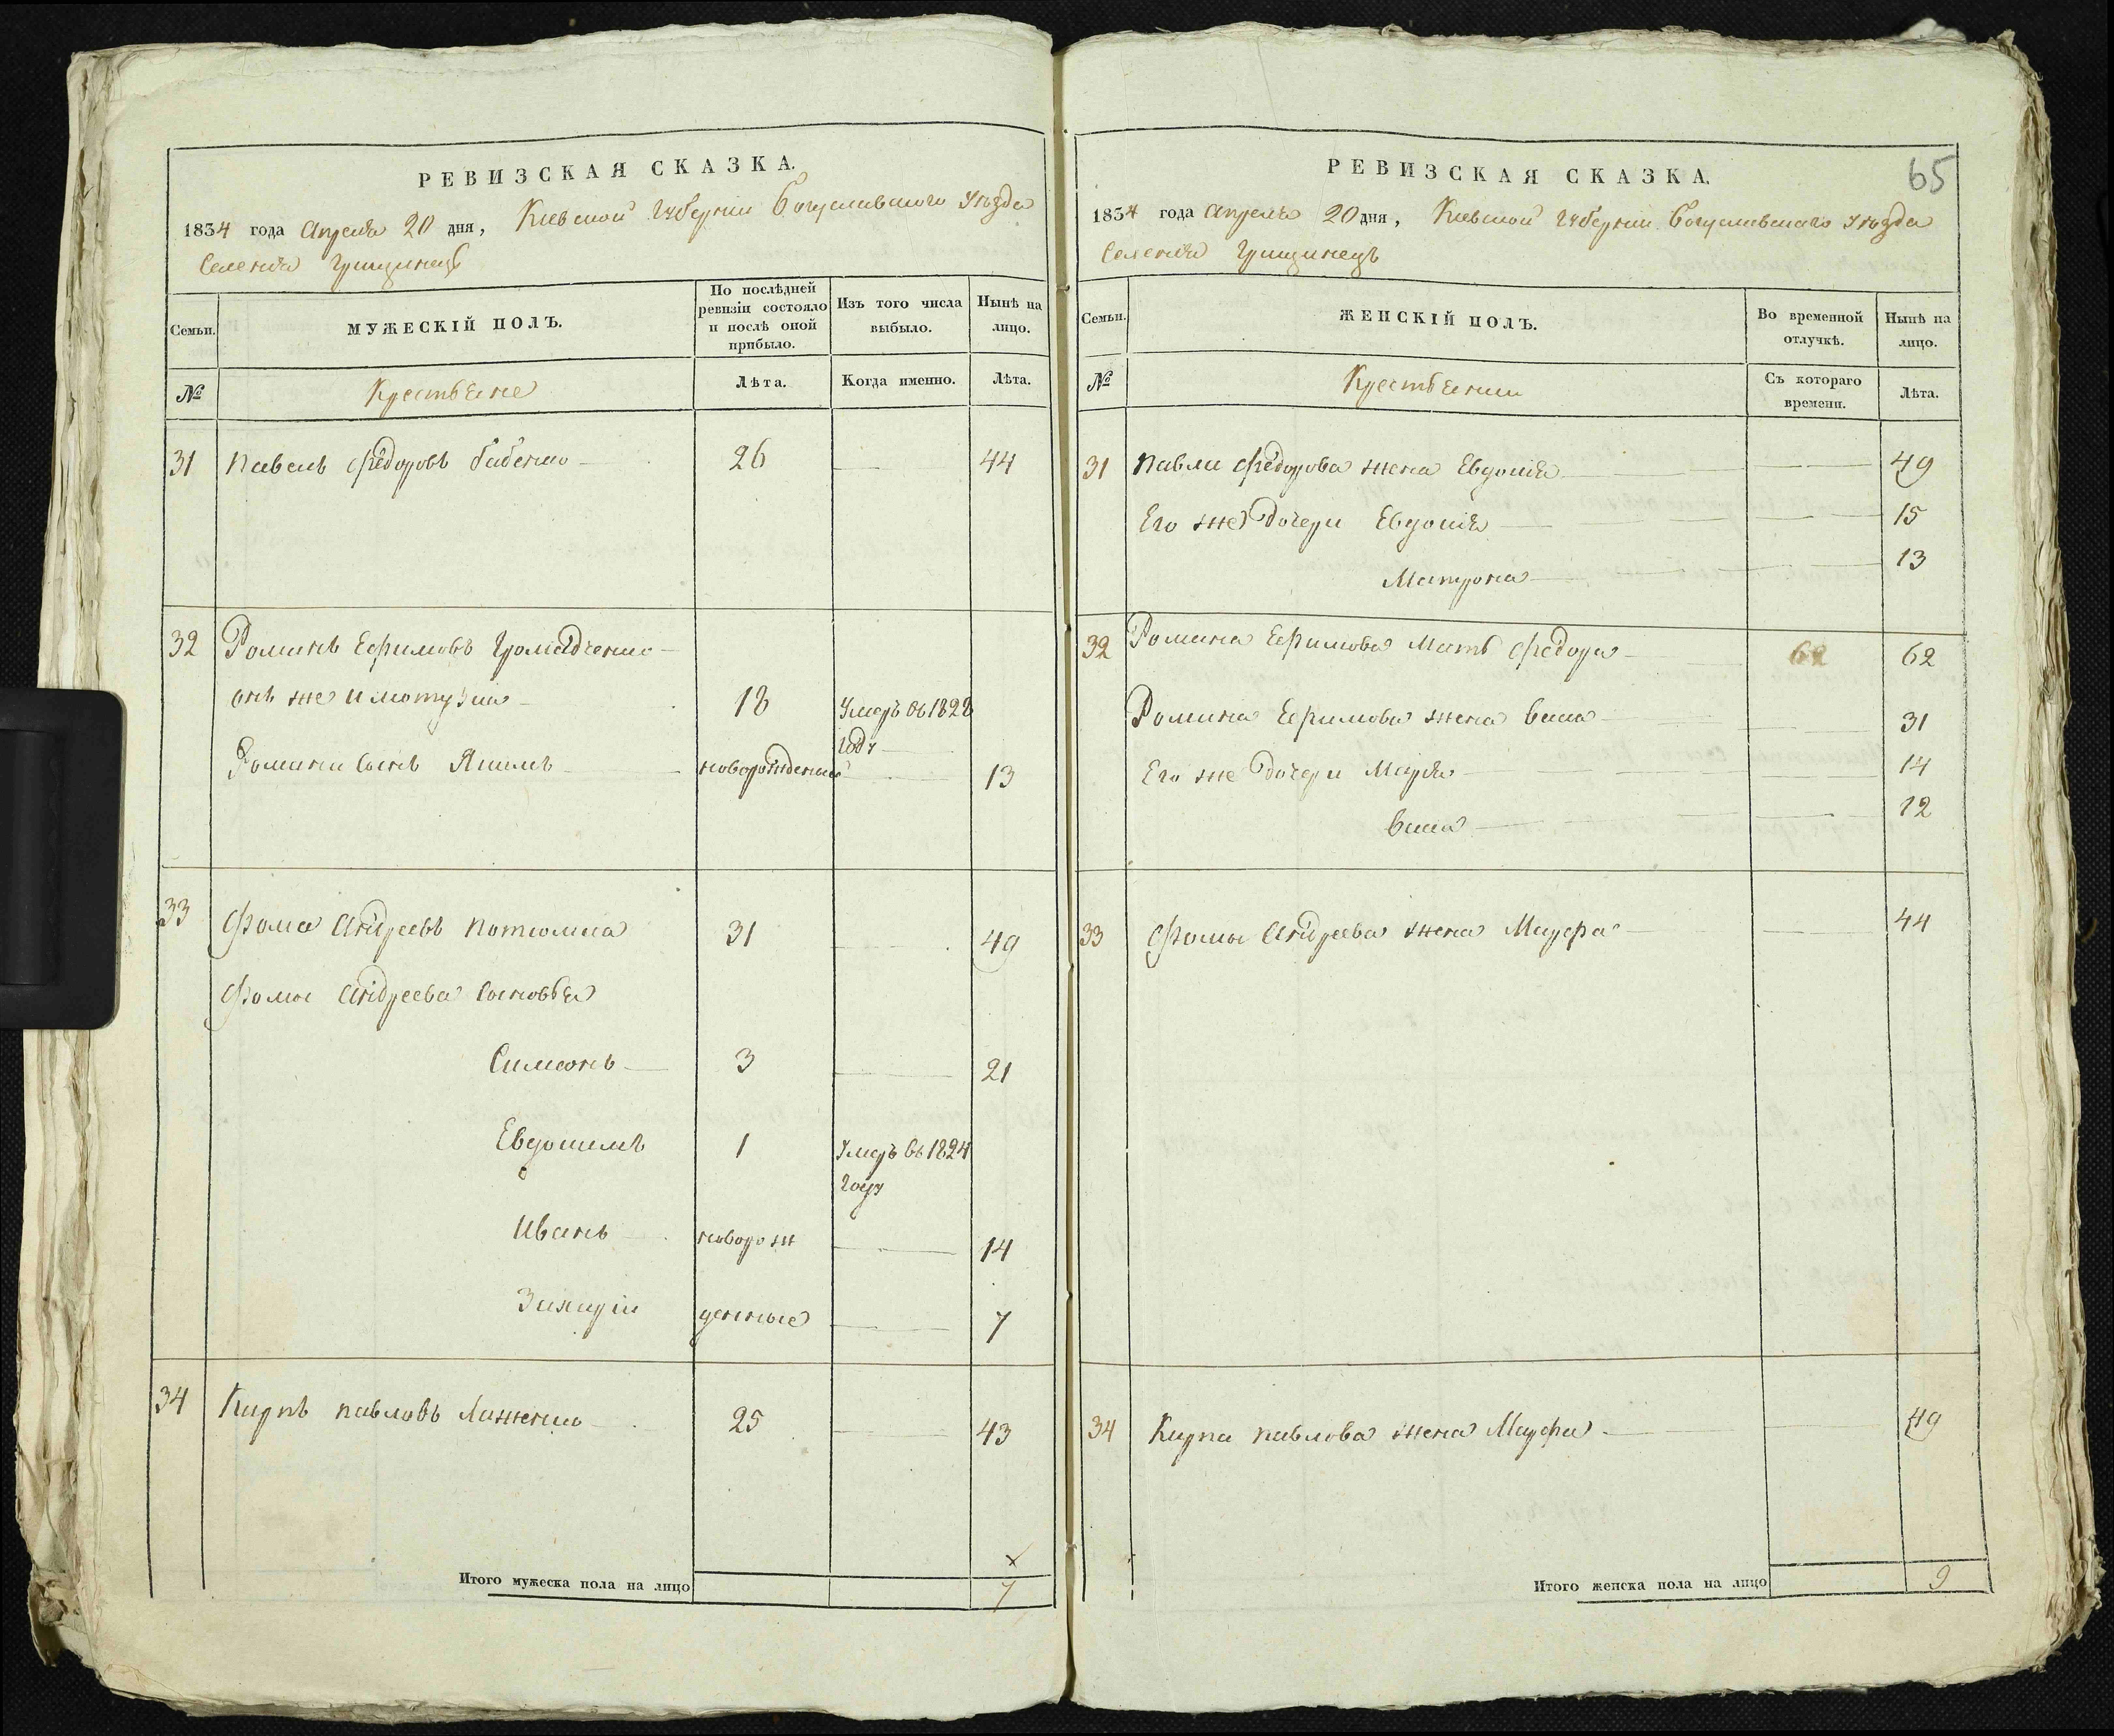 РЕВИЗСКАЯ СКАЗКА.
1834 года Апреля 20 дня, Киевской Губернии Богуславского Уѣзда
Селения Грищинецъ
Семьи. МУЖЕСКІЙ ПОЛЪ. По послѣдней ревизіи состояло и послѣ оной прибыло. Изъ того числа выбыло. Нынѣ на лицо.
№ Крестьяне Лѣта. Когда именно. Лѣта.
31 Павелъ Федоровъ Бабенко 26 44
32 Романъ Ефимовъ Громадченко
онъ же 18 Умеръ въ 1828
году
Романа сынъ Якимъ новорожденный 13
33 Фома Андреевъ Потюпка 31 49
Фомы Андреева сыновья
Симеонъ 3 21
Евдокимъ 1 Умеръ въ 1824
году
Иванъ новорож 14
Захарій денные 7
34 Карпъ Павловъ Лаженко 25 43
Итого мужеска пола на лицо 7
65
РЕВИЗСКАЯ СКАЗКА.
1834 года Апреля 20 дня, Киевской Губернии Богуславского Уѣзда
Селения Грищинецъ
Семьи. ЖЕНСКІЙ ПОЛЪ. Во временной отлучкѣ. Нынѣ на лицо.
№ Крестьянки Съ котораго времени. Лѣта.
31 Павла Федорова жена Евдокия 49
Его же дочери Евдокия 15
Матрона 13
32 Романа Ефимова Мать Федора 62 62
Романа Ефимова жена Васса 31
Его же дочери Мария 14
Васса 12
33 Фомы Андреева жена Мауфра 44
34 Карпа Павлова жена Мауфра 49
Итого женска пола на лицо 9